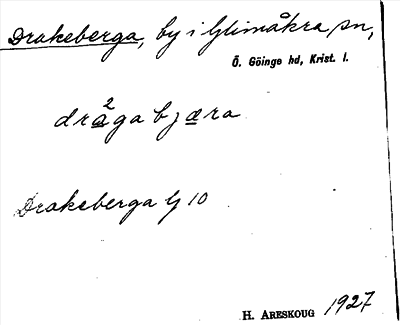 Drakeberga, by i Glimåkra sn,
Ö. Göinge hd, Krist. l.
dra²ga bjæra
Drakeberga G 10
H. ARESKOUG 1927